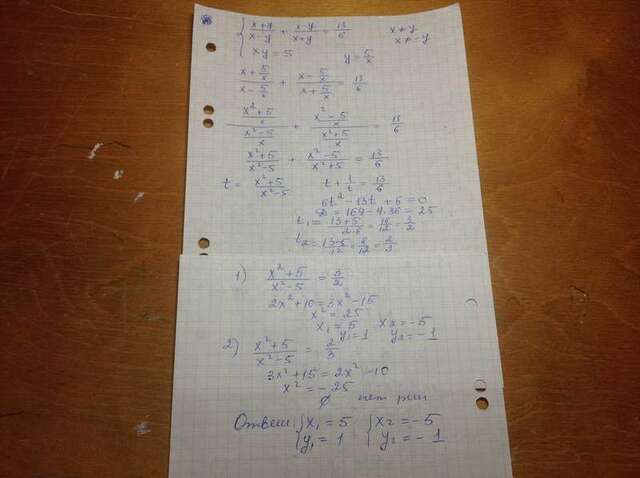 { (x+y)/(x-y) + (x-y)/(x+y) = 13/6    x≠y
xy = 5    y = 5/x    x≠-y
(x + 5/x)/(x - 5/x) + (x - 5/x)/(x + 5/x) = 13/6
((x²+5)/x)/((x²-5)/x) + ((x²-5)/x)/((x²+5)/x) = 13/6
(x²+5)/(x²-5) + (x²-5)/(x²+5) = 13/6
t = (x²+5)/(x²-5)    t + 1/t = 13/6
6t² - 13t + 6 = 0
D = 169 - 4·36 = 25
t₁ = (13+5)/(2·6) = 18/12 = 3/2
t₂ = (13-5)/12 = 8/12 = 2/3
1) (x²+5)/(x²-5) = 3/2
2x²+10 = 3x²-15
x² = 25
x₁ = 5    x₂ = -5
y₁ = 1    y₂ = -1
2) (x²+5)/(x²-5) = 2/3
3x²+15 = 2x²-10
x² = -25
∅ нет реш
Ответ: { x₁ = 5    { x₂ = -5
y₁ = 1    y₂ = -1